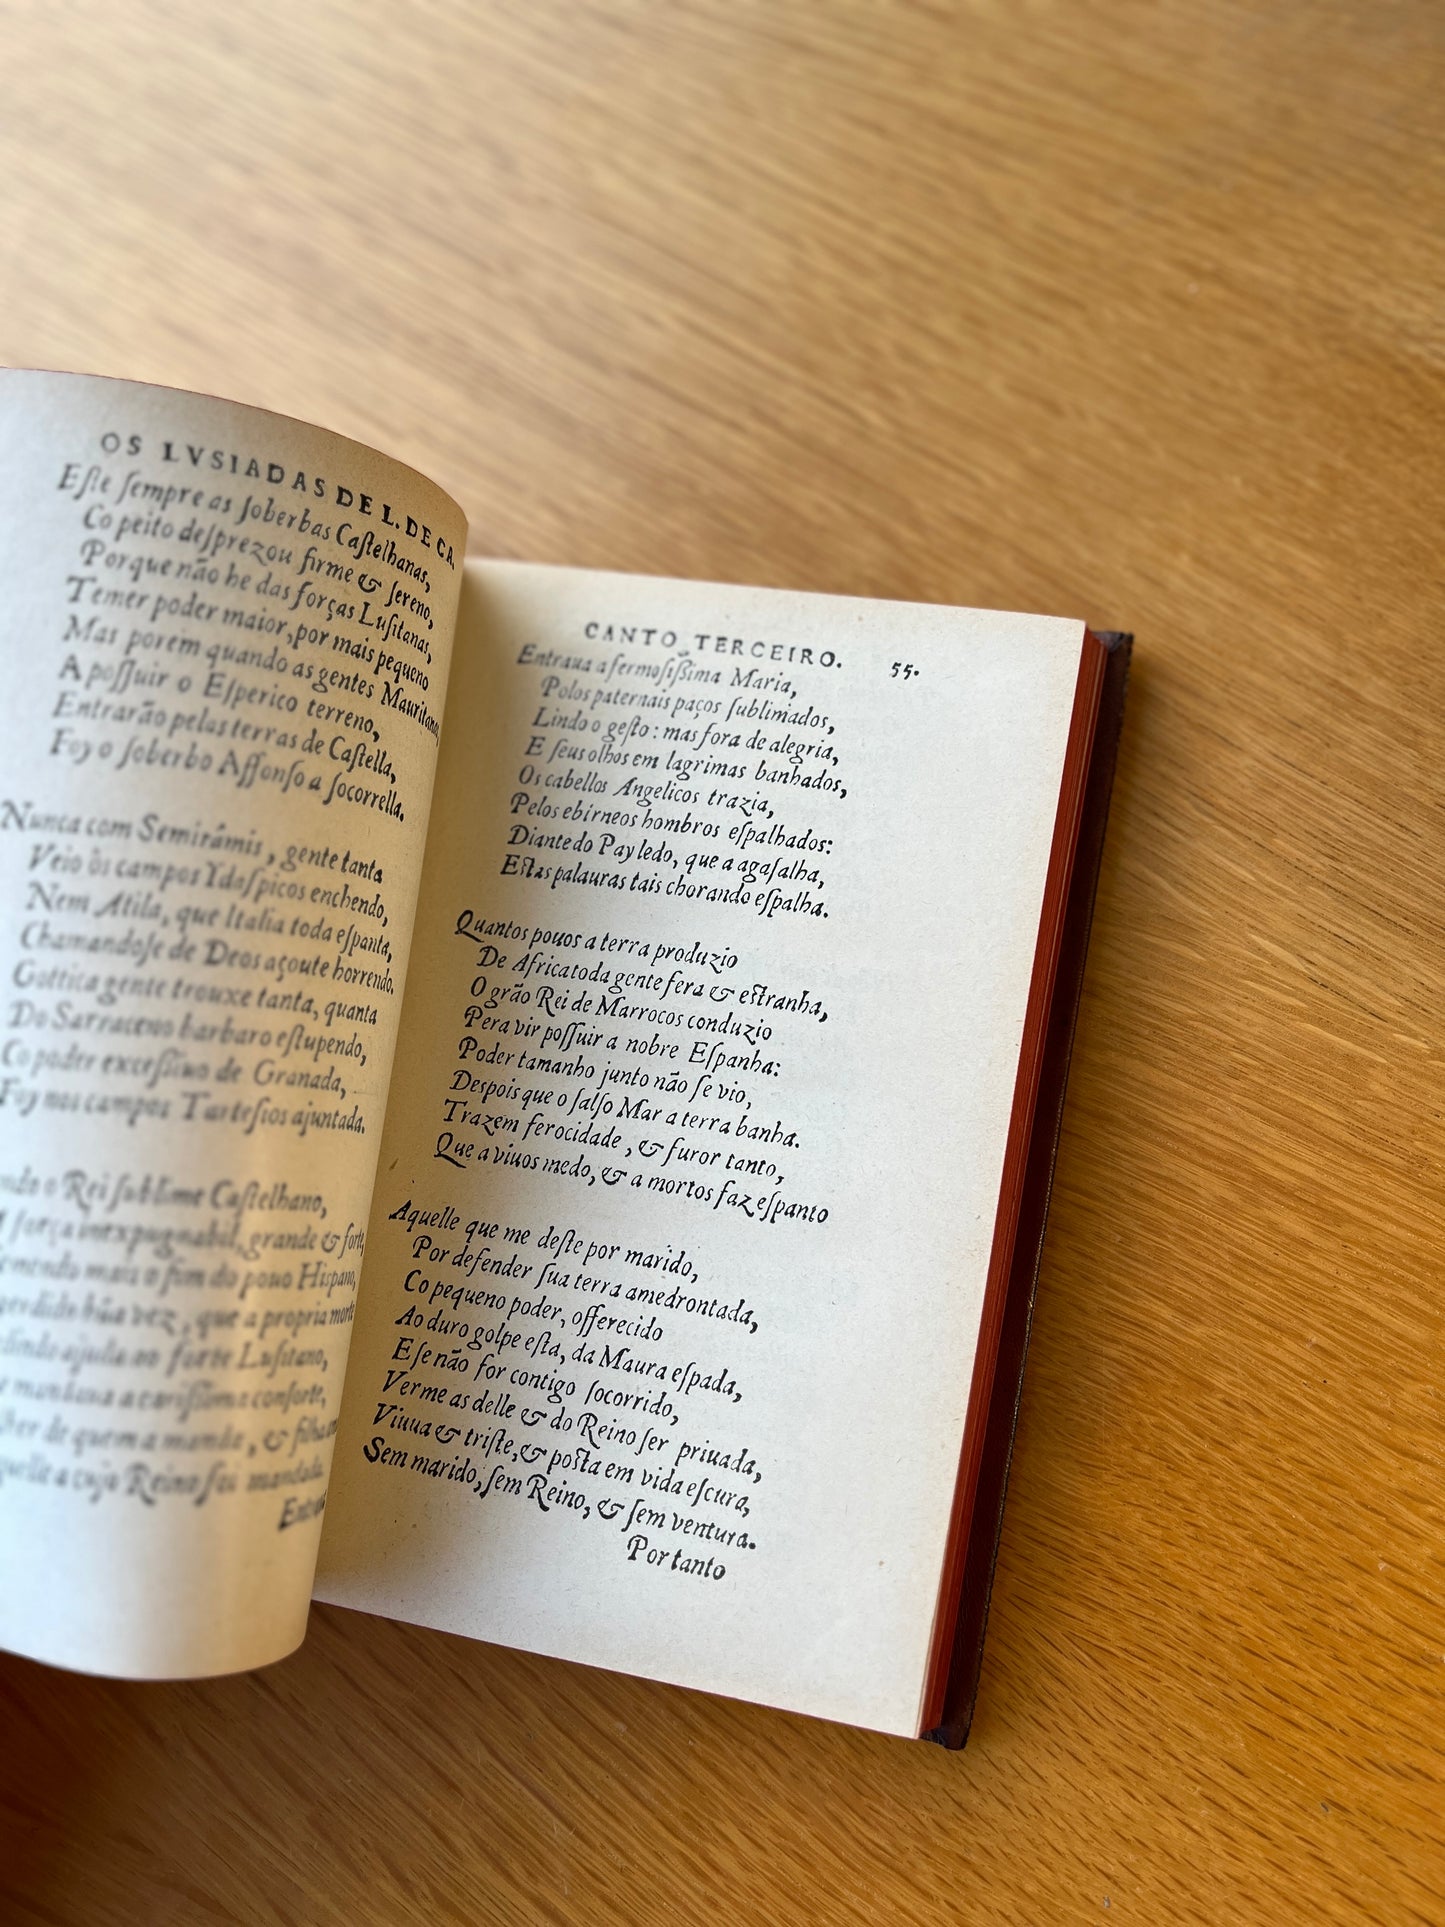 OS LVSIADAS DE L. DE CA.
Eſte ſempre as ſoberbas Caſtelhanas,
Co peito deſprezou firme & ſereno,
Porque não he das forças Luſitanas,
Temer poder maior, por mais pequeno
Mas porem quando as gentes Mauritanas,
A poſſuir o Eſperico terreno,
Entrarão pelas terras de Caſtella,
Foy o ſoberbo Affonſo a ſocorrella.
Nunca com Semirâmis, gente tanta
Veio os campos Ydaſpicos enchendo,
Nem Atila, que Italia toda eſpanta,
Chamandoſe de Deos açoute horrendo.
Gottica gente trouxe tanta, quanta
Do Sarraceno barbaro eſtupendo,
Co poder exceſſiuo de Granada,
Foy nos campos Tarteſios ajuntada.
o Rei ſublime Caſtelhano,
força inexpugnabil, grande & forte,
mais o fim do pouo Hiſpano,
hũa vez, que a propria morte
ajuda ao forte Luſitano,
mandaua a cariſſima conſorte,
de quem a manda, & filha
a cujo Reino foi mandada
CANTO TERCEIRO. 55.
Entraua a fermoſiſſima Maria,
Polos paternais paços ſublimados,
Lindo o geſto: mas fora de alegria,
E ſeus olhos em lagrimas banhados,
Os cabellos Angelicos trazia,
Pelos ebirneos hombros eſpalhados:
Diante do Pay ledo, que a agaſalha,
Eſtas palauras tais chorando eſpalha.
Quantos pouos a terra produzio
De Africa toda gente fera & eſtranha,
O grão Rei de Marrocos conduzio
Pera vir poſſuir a nobre Eſpanha:
Poder tamanho junto não ſe vio,
Despois que o ſalſo Mar a terra banha.
Trazem ferocidade, & furor tanto,
Que a viuos medo, & a mortos faz eſpanto
Aquelle que me deſte por marido,
Por defender ſua terra amedrontada,
Co pequeno poder, offerecido
Ao duro golpe eſta, da Maura eſpada,
E ſe não for contigo ſocorrido,
Verme as delle & do Reino ſer priuada,
Viuua & triſte, & poſta em vida eſcura,
Sem marido, ſem Reino, & ſem ventura.
Portanto